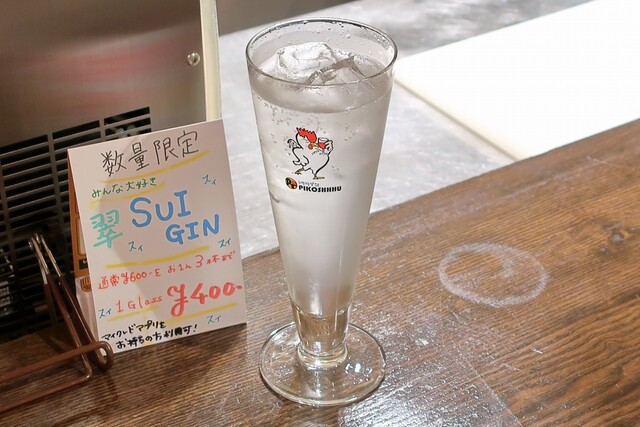 数量限定
みんな大好き
翠 SUI
GIN
スィ
スィ
スィ
通常¥600-を お1人3杯まで
スィ 1Glass ¥400-
スィ
マイクレドアプリを
お持ちの方利用可!
PIKOSHHHU